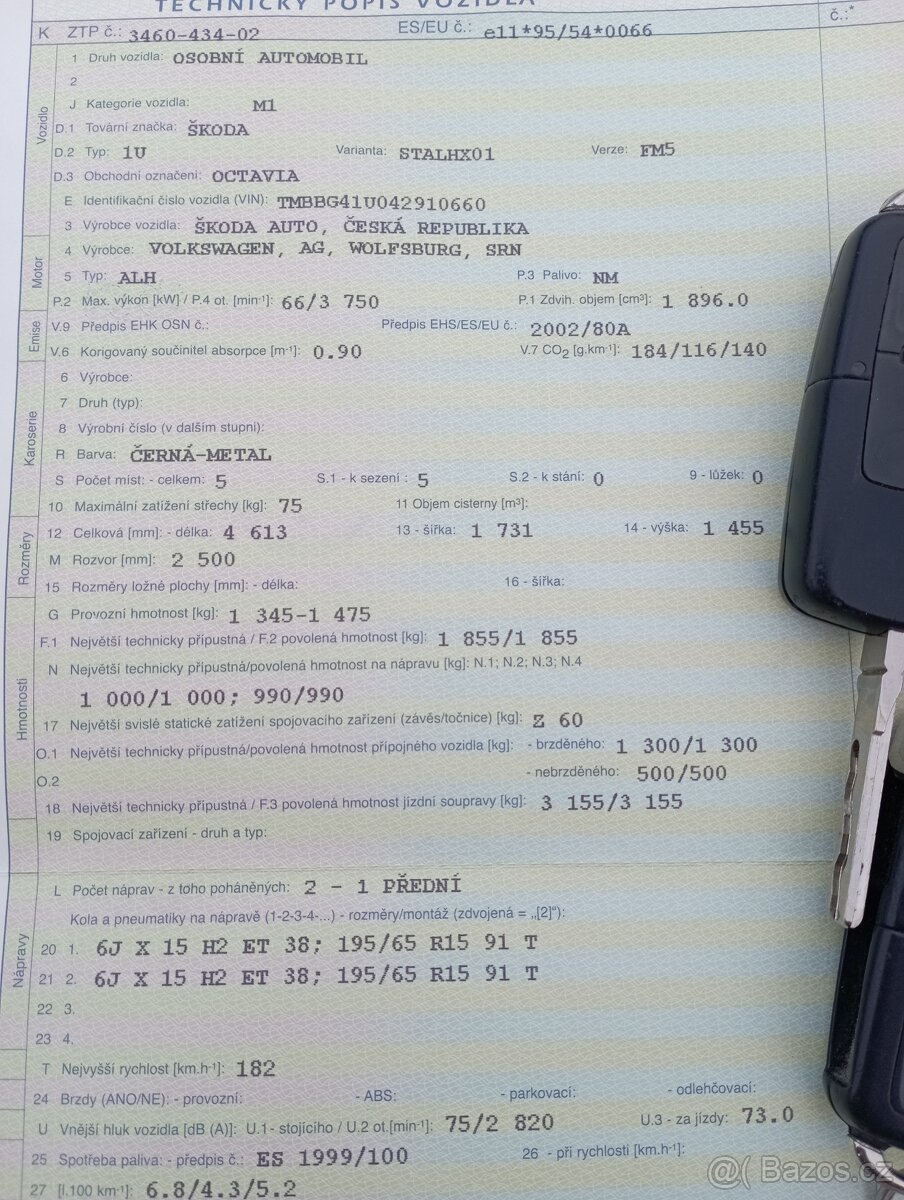 TECHNICKÝ POPIS VOZIDLA
K ZTP č.: 3460-434-02 ES/EU č.: e11*95/54*0066 č.:*
Vozidlo
1 Druh vozidla: OSOBNÍ AUTOMOBIL
2
J Kategorie vozidla: M1
D.1 Tovární značka: ŠKODA
D.2 Typ: 1U Varianta: STALHX01 Verze: FM5
D.3 Obchodní označení: OCTAVIA
E Identifikační číslo vozidla (VIN): TMBBG41U042910660
3 Výrobce vozidla: ŠKODA AUTO, ČESKÁ REPUBLIKA
Motor
4 Výrobce: VOLKSWAGEN, AG, WOLFSBURG, SRN
5 Typ: ALH P.3 Palivo: NM
P.2 Max. výkon [kW] / P.4 ot. [min-¹]: 66/3 750 P.1 Zdvih. objem [cm³]: 1 896.0
Emise
V.9 Předpis EHK OSN č.: Předpis EHS/ES/EU č.: 2002/80A
V.6 Korigovaný součinitel absorpce [m-¹]: 0.90 V.7 CO₂ [g.km-¹]: 184/116/140
Karoserie
6 Výrobce:
7 Druh (typ):
8 Výrobní číslo (v dalším stupni):
R Barva: ČERNÁ-METAL
S Počet míst: - celkem: 5 S.1 - k sezení : 5 S.2 - k stání: 0 9 - lůžek: 0
10 Maximální zatížení střechy [kg]: 75 11 Objem cisterny [m³]:
Rozměry
12 Celková [mm]: - délka: 4 613 13 - šířka: 1 731 14 - výška: 1 455
M Rozvor [mm]: 2 500
15 Rozměry ložné plochy [mm]: - délka: 16 - šířka:
Hmotnosti
G Provozní hmotnost [kg]: 1 345-1 475
F.1 Největší technicky přípustná / F.2 povolená hmotnost [kg]: 1 855/1 855
N Největší technicky přípustná/povolená hmotnost na nápravu [kg]: N.1; N.2; N.3; N.4
1 000/1 000; 990/990
17 Největší svislé statické zatížení spojovacího zařízení (závěs/točnice) [kg]: Z 60
O.1 Největší technicky přípustná/povolená hmotnost přípojného vozidla [kg]: - brzděného: 1 300/1 300
O.2 - nebrzděného: 500/500
18 Největší technicky přípustná / F.3 povolená hmotnost jízdní soupravy [kg]: 3 155/3 155
19 Spojovací zařízení - druh a typ:
Nápravy
L Počet náprav - z toho poháněných: 2 - 1 PŘEDNÍ
Kola a pneumatiky na nápravě (1-2-3-4-...) - rozměry/montáž (zdvojená = „[2]“):
20 1. 6J X 15 H2 ET 38; 195/65 R15 91 T
21 2. 6J X 15 H2 ET 38; 195/65 R15 91 T
22 3.
23 4.
T Nejvyšší rychlost [km.h-¹]: 182
24 Brzdy (ANO/NE): - provozní: - ABS: - parkovací: - odlehčovací:
U Vnější hluk vozidla [dB (A)]: U.1 - stojícího / U.2 ot.[min-¹]: 75/2 820 U.3 - za jízdy: 73.0
25 Spotřeba paliva: - předpis č.: ES 1999/100 26 - při rychlosti [km.h-¹]:
27 [l.100 km-¹]: 6.8/4.3/5.2
@( Bazos.cz